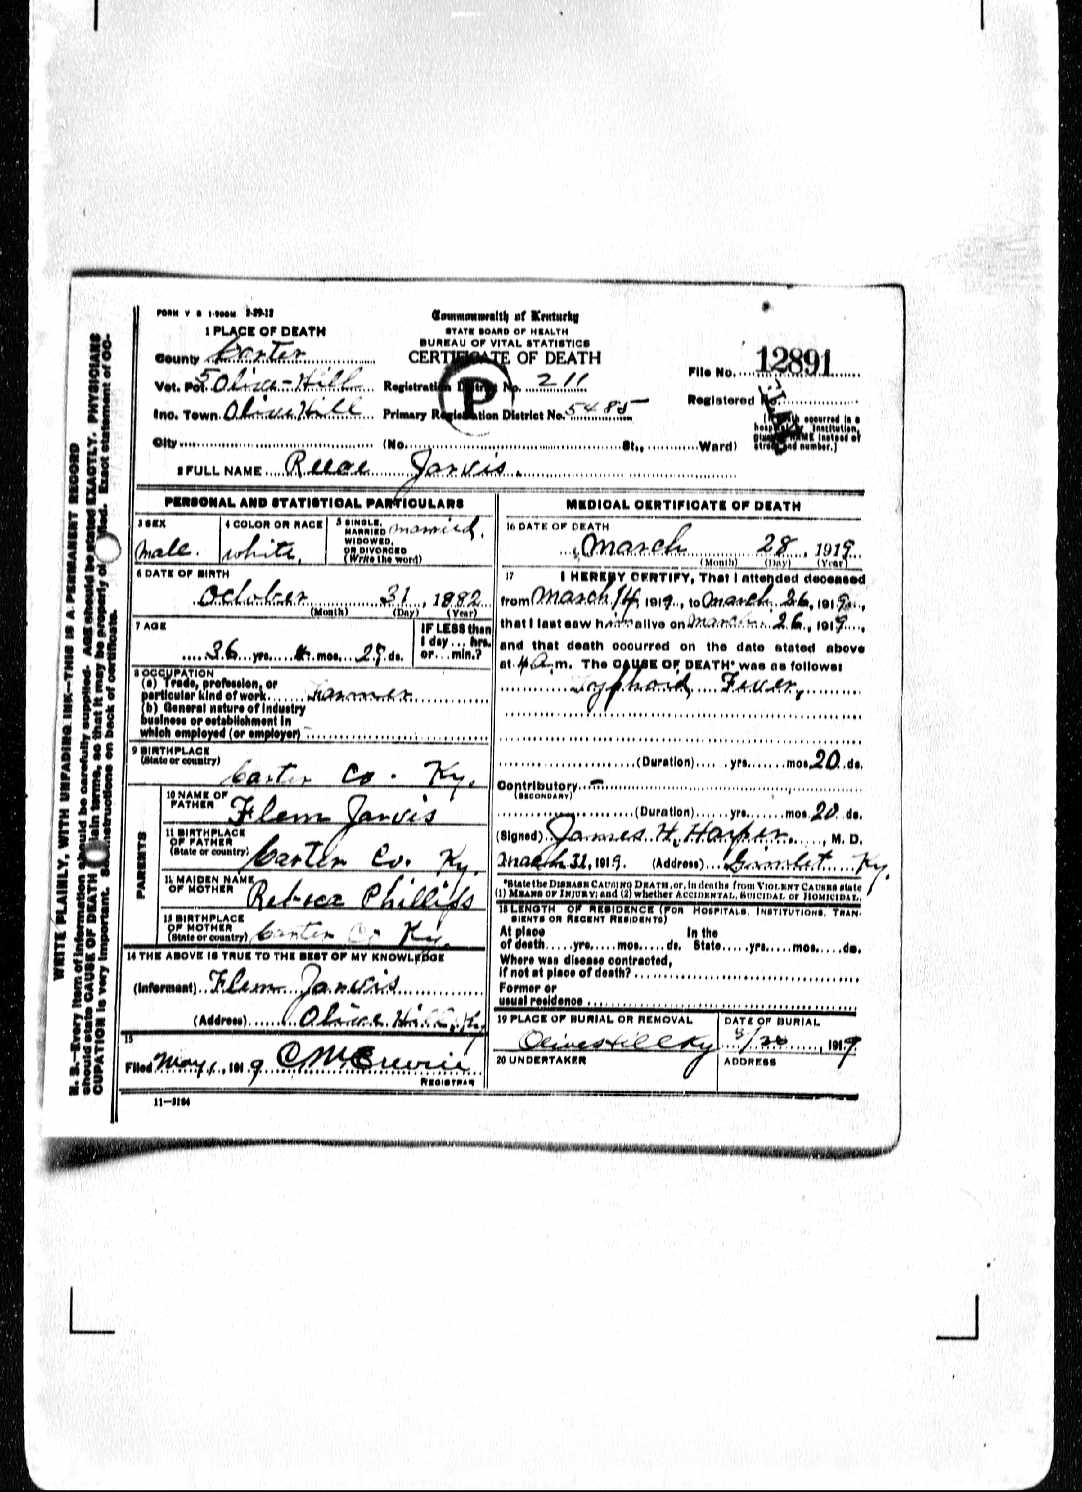 FORM V S 1-500M 3-29-12
Commonwealth of Kentucky
STATE BOARD OF HEALTH
BUREAU OF VITAL STATISTICS
CERTIFICATE OF DEATH
1 PLACE OF DEATH
County Carter
Vot. Pct. 5 Olive-Hill Registration District No. 211
Inc. Town Olive Hill Primary Registration District No. 5485
City (No. St., Ward)
P
File No. 12891
Registered No.
occurred in a
Institution,
NAME instead of
street and number.)
2 FULL NAME Reece Jarvis.
PERSONAL AND STATISTICAL PARTICULARS
3 SEX
male.
4 COLOR OR RACE
white,
5 SINGLE, MARRIED WIDOWED, OR DIVORCED (Write the word)
married.
6 DATE OF BIRTH
October 31, 1882
(Month) (Day) (Year)
7 AGE
36 yrs. 4 mos. 28 ds.
IF LESS than
1 day ... hrs.
or ... min.?
8 OCCUPATION
(a) Trade, profession, or
particular kind of work Farmer
(b) General nature of industry
business or establishment in
which employed (or employer)
9 BIRTHPLACE
(State or country)
Carter Co. Ky.
PARENTS
10 NAME OF FATHER
Flem Jarvis
11 BIRTHPLACE OF FATHER
(State or country)
Carter Co. Ky.
12 MAIDEN NAME OF MOTHER
Rebeca Phillips
13 BIRTHPLACE OF MOTHER
(State or country)
Carter Co Ky.
14 THE ABOVE IS TRUE TO THE BEST OF MY KNOWLEDGE
(Informant) Flem Jarvis
(Address) Olive Hill, Ky
15
Filed May 1, 1919
REGISTRAR
11-3184
MEDICAL CERTIFICATE OF DEATH
16 DATE OF DEATH
March 28, 1919
(Month) (Day) (Year)
17 I HEREBY CERTIFY, That I attended deceased
from March 14, 1919, to March 26, 1919,
that I last saw him alive on March 26, 1919,
and that death occurred on the date stated above
at 4 a.m. The CAUSE OF DEATH* was as follows:
Typhoid Fever,
(Duration) yrs. mos. 20 ds.
Contributory -
(SECONDARY)
(Duration) yrs. mos. 20 ds.
(Signed) James H. Harper, M. D.
March 31, 1919. (Address) Gimlet Ky.
*State the DISEASE CAUSING DEATH, or, in deaths from VIOLENT CAUSES state
(1) MEANS OF INJURY; and (2) whether ACCIDENTAL, SUICIDAL OR HOMICIDAL.
18 LENGTH OF RESIDENCE (FOR HOSPITALS, INSTITUTIONS, TRAN-
SIENTS OR RECENT RESIDENTS)
At place In the
of death yrs. mos. ds. State yrs. mos. ds.
Where was disease contracted,
if not at place of death?
Former or
usual residence
19 PLACE OF BURIAL OR REMOVAL
Olive Hill Ky
DATE OF BURIAL
1919
20 UNDERTAKER
ADDRESS
WRITE PLAINLY, WITH UNFADING INK-THIS IS A PERMANENT RECORD
N. B.-Every item of information should be carefully supplied. AGE should be stated EXACTLY. PHYSICIANS
should state CAUSE OF DEATH in plain terms, so that it may be properly classified. Exact statement of OC-
CUPATION is very important. See instructions on back of certificate.